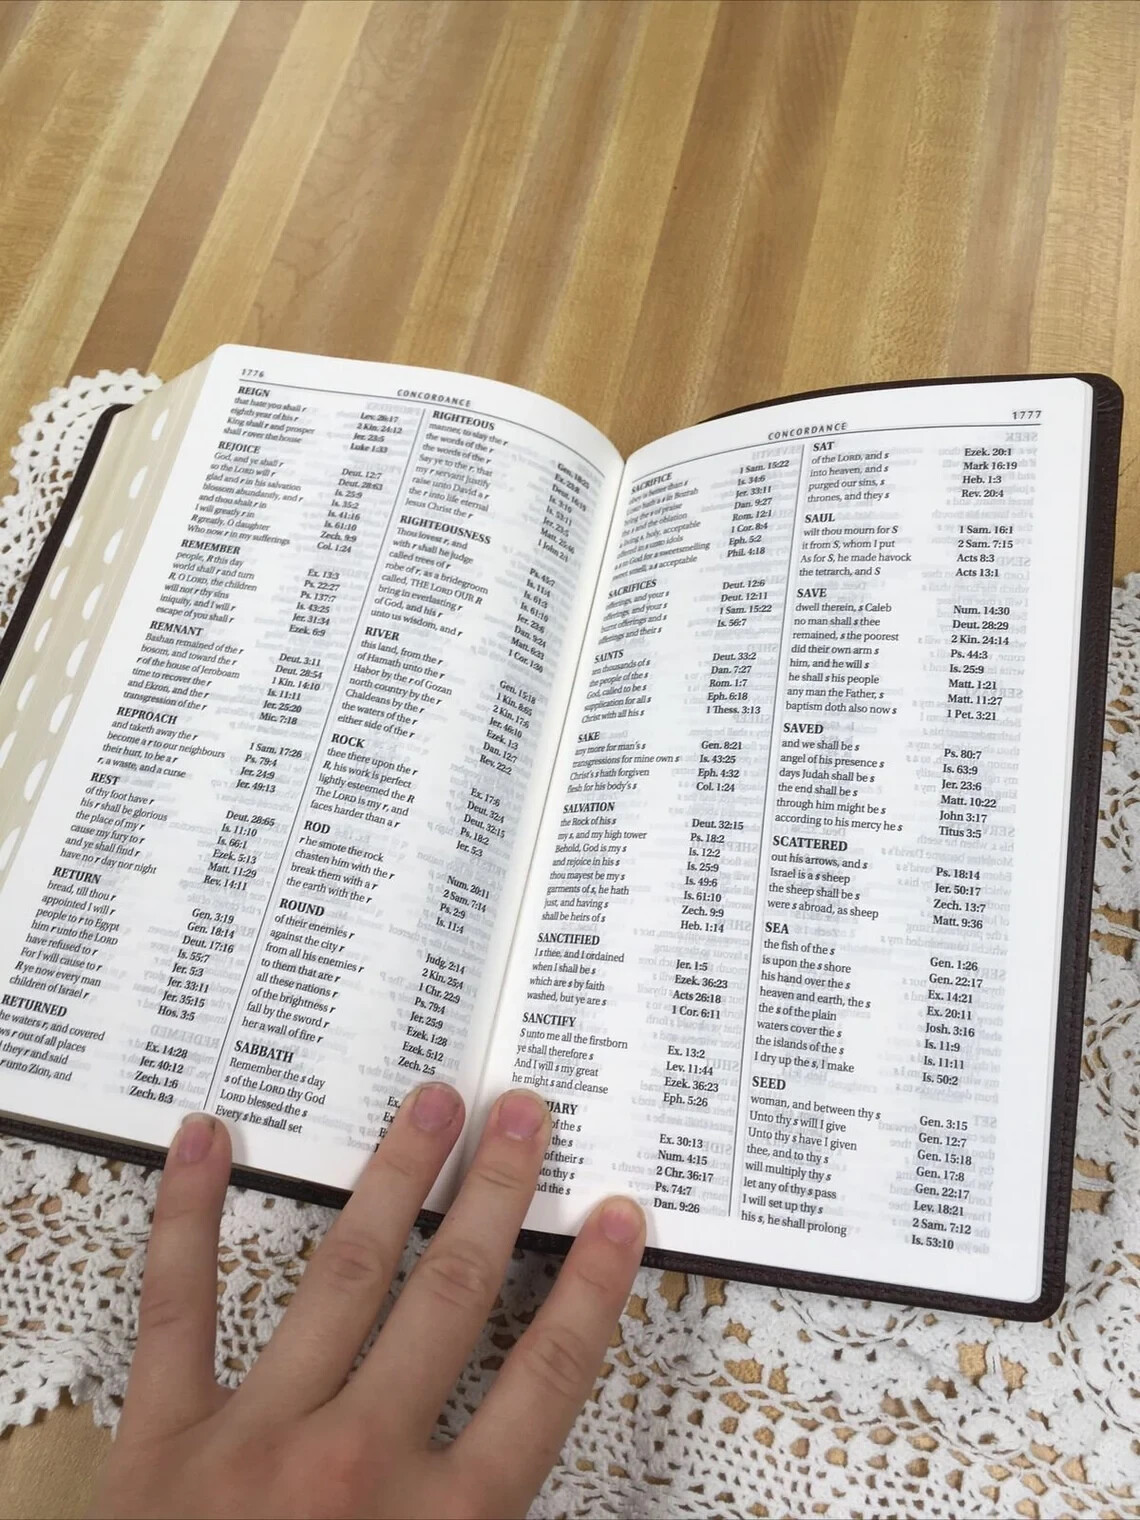 1776
CONCORDANCE
REIGN
that hate you shall r Lev. 26:17
eighth year of his r 2 Kin. 24:12
King shall r and prosper Jer. 23:5
shall r over the house Luke 1:33
REJOICE
God, and ye shall r Deut. 12:7
so the LORD will r Deut. 28:63
glad and r in his salvation Is. 25:9
blossom abundantly, and r Is. 35:2
and thou shalt r in Is. 41:16
I will greatly r in Is. 61:10
R greatly, O daughter Zech. 9:9
Who now r in my sufferings Col. 1:24
REMEMBER
people, R this day Ex. 13:3
world shall r and turn Ps. 22:27
R, O LORD, the children Ps. 137:7
will not r thy sins Is. 43:25
iniquity, and I will r Jer. 31:34
escape of you shall r Ezek. 6:9
REMNANT
Bashan remained of the r Deut. 3:11
bosom, and toward the r Deut. 28:54
r of the house of Jeroboam 1 Kin. 14:10
time to recover the r Is. 11:11
and Ekron, and the r Jer. 25:20
transgression of the r Mic. 7:18
REPROACH
and taketh away the r 1 Sam. 17:26
become a r to our neighbours Ps. 79:4
their hurt, to be a r Jer. 24:9
r, a waste, and a curse Jer. 49:13
REST
of thy foot have r Deut. 28:65
his r shall be glorious Is. 11:10
the place of my r Is. 66:1
cause my fury to r Ezek. 5:13
and ye shall find r Matt. 11:29
have no r day nor night Rev. 14:11
RETURN
bread, till thou r Gen. 3:19
appointed I will r Gen. 18:14
people to r to Egypt Deut. 17:16
him r unto the LORD Is. 55:7
have refused to r Jer. 5:3
For I will cause to r Jer. 33:11
R ye now every man Jer. 35:15
children of Israel r Hos. 3:5
RETURNED
the waters r, and covered Ex. 14:28
r out of all places Jer. 40:12
they r and said Zech. 1:6
r unto Zion, and Zech. 8:3
RIGHTEOUS
manner, to slay the r Gen. 18:25
the words of the r Ex. 23:8
the words of the r Deut. 16:19
Say ye to the r, that Is. 3:10
my r servant justify Is. 53:11
raise unto David a r Jer. 23:5
the r into life eternal Matt. 25:46
Jesus Christ the r 1 John 2:1
RIGHTEOUSNESS
Thou lovest r, and Ps. 45:7
with r shall he judge Is. 11:4
called trees of r Is. 61:3
robe of r, as a bridegroom Is. 61:10
called, THE LORD OUR R Jer. 23:6
bring in everlasting r Dan. 9:24
of God, and his r Matt. 6:33
unto us wisdom, and r 1 Cor. 1:30
RIVER
this land, from the r Gen. 15:18
of Hamath unto the r 1 Kin. 8:65
Habor by the r of Gozan 2 Kin. 17:6
north country by the r Jer. 46:10
Chaldeans by the r Ezek. 1:3
the waters of the r Dan. 12:7
either side of the r Rev. 22:2
ROCK
thee there upon the r Ex. 17:6
R, his work is perfect Deut. 32:4
lightly esteemed the R Deut. 32:15
The LORD is my r, and Ps. 18:2
faces harder than a r Jer. 5:3
ROD
r he smote the rock Num. 20:11
chasten him with the r 2 Sam. 7:14
break them with a r Ps. 2:9
the earth with the r Is. 11:4
ROUND
of their enemies r Judg. 2:14
against the city r 2 Kin. 25:4
from all his enemies r 1 Chr. 22:9
to them that are r Ps. 79:4
all these nations r Jer. 25:9
of the brightness r Ezek. 1:28
fall by the sword r Ezek. 5:12
her a wall of fire r Zech. 2:5
SABBATH
Remember the s day Ex.
s of the LORD thy God Ex.
LORD blessed the s
Every s he shall set
1777
CONCORDANCE
SACRIFICE
obey is better than s 1 Sam. 15:22
hath a s in Bozrah Is. 34:6
bring the s of praise Jer. 33:11
the s and the oblation Dan. 9:27
a living s, holy, acceptable Rom. 12:1
offered in s unto idols 1 Cor. 8:4
a s to God for a sweetsmelling Eph. 5:2
sweet smell, a s acceptable Phil. 4:18
SACRIFICES
offerings, and your s Deut. 12:6
offerings, and your s Deut. 12:11
burnt offerings and s 1 Sam. 15:22
offerings and their s Is. 56:7
SAINTS
ten thousands of s Deut. 33:2
the people of the s Dan. 7:27
God, called to be s Rom. 1:7
supplication for all s Eph. 6:18
Christ with all his s 1 Thess. 3:13
SAKE
any more for man's s Gen. 8:21
transgressions for mine own s Is. 43:25
Christ's s hath forgiven Eph. 4:32
flesh for his body's s Col. 1:24
SALVATION
the Rock of his s Deut. 32:15
my s, and my high tower Ps. 18:2
Behold, God is my s Is. 12:2
and rejoice in his s Is. 25:9
thou mayest be my s Is. 49:6
garments of s, he hath Is. 61:10
just, and having s Zech. 9:9
shall be heirs of s Heb. 1:14
SANCTIFIED
I s thee, and I ordained Jer. 1:5
when I shall be s Ezek. 36:23
which are s by faith Acts 26:18
washed, but ye are s 1 Cor. 6:11
SANCTIFY
S unto me all the firstborn Ex. 13:2
ye shall therefore s Lev. 11:44
And I will s my great Ezek. 36:23
he might s and cleanse Eph. 5:26
UARY
of the s Ex. 30:13
the s Num. 4:15
of their s 2 Chr. 36:17
to thy s Ps. 74:7
nd the s Dan. 9:26
SAT
of the LORD, and s Ezek. 20:1
into heaven, and s Mark 16:19
purged our sins, s Heb. 1:3
thrones, and they s Rev. 20:4
SAUL
wilt thou mourn for S 1 Sam. 16:1
it from S, whom I put 2 Sam. 7:15
As for S, he made havock Acts 8:3
the tetrarch, and S Acts 13:1
SAVE
dwell therein, s Caleb Num. 14:30
no man shall s thee Deut. 28:29
remained, s the poorest 2 Kin. 24:14
did their own arm s Ps. 44:3
him, and he will s Is. 25:9
he shall s his people Matt. 1:21
any man the Father, s Matt. 11:27
baptism doth also now s 1 Pet. 3:21
SAVED
and we shall be s Ps. 80:7
angel of his presence s Is. 63:9
days Judah shall be s Jer. 23:6
the end shall be s Matt. 10:22
through him might be s John 3:17
according to his mercy he s Titus 3:5
SCATTERED
out his arrows, and s Ps. 18:14
Israel is a s sheep Jer. 50:17
the sheep shall be s Zech. 13:7
were s abroad, as sheep Matt. 9:36
SEA
the fish of the s Gen. 1:26
is upon the s shore Gen. 22:17
his hand over the s Ex. 14:21
heaven and earth, the s Ex. 20:11
the s of the plain Josh. 3:16
waters cover the s Is. 11:9
the islands of the s Is. 11:11
I dry up the s, I make Is. 50:2
SEED
woman, and between thy s Gen. 3:15
Unto thy s will I give Gen. 12:7
Unto thy s have I given Gen. 15:18
thee, and to thy s Gen. 17:8
will multiply thy s Gen. 22:17
let any of thy s pass Lev. 18:21
I will set up thy s 2 Sam. 7:12
his s, he shall prolong Is. 53:10